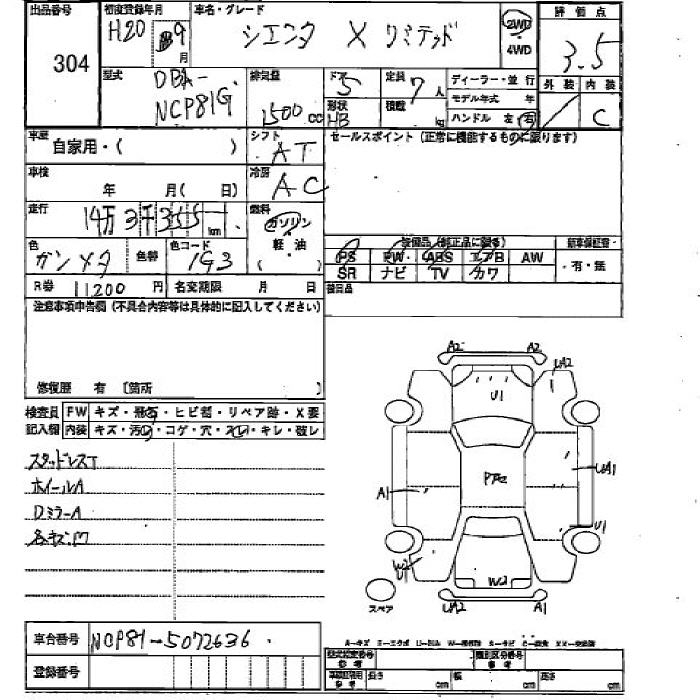 出品番号
304
初度登録年月
H20 9 月
車名・グレード
シエンタ X リミテッド
2WD
4WD
評価点
3.5
外装 内装
C
型式
DBA-
NCP81G
排気量
1500 cc
ドア 5
形状 HB
定員 7 人
積載 kg
ディーラー・並行
モデル年式 年
ハンドル 左 右
車歴 自家用・( )
シフト
AT
セールスポイント (正常に機能するものに限ります)
車検
年 月( 日)
冷房
AC
走行
14万3千355 km
燃料
ガソリン
軽油
( )
色
ガンメタ
色替
色コード
1G3
装備品(純正品に限る)
PS PW ABS エアB AW
SR ナビ TV カワ
新車保証書
有・無
R券 11200 円
名変期限 月 日
後日品
注意事項申告欄 (不具合内容等は具体的に記入してください)
修復歴 有 〔箇所
検査員
記入欄
FW キズ・飛石・ヒビ割・リペア跡・X要
内装 キズ・汚レ・コゲ・穴・スレ・キレ・破レ
スタッドレスT
ホイールA
DミラーA
各キズM
A2
A2
UA2
U1
A1
UA1
U1
W2
UA2
A1
スペア
車台番号 NCP81-5072636
登録番号
型式指定番号
参考
類別区分番号
参考
長さ cm 幅 cm 高さ cm